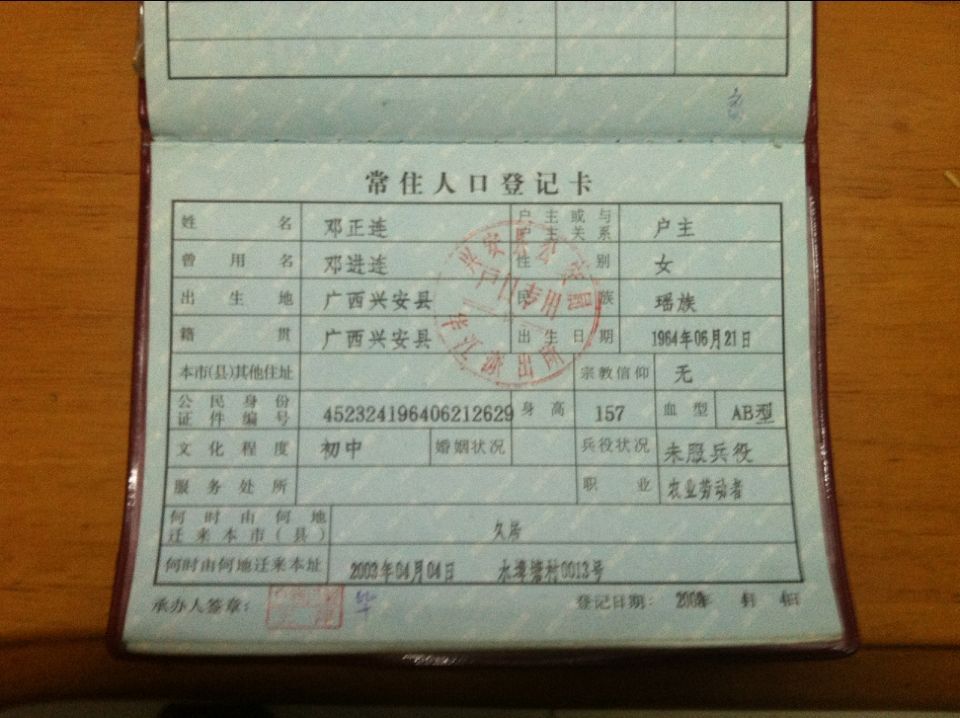 常住人口登记卡
姓名 邓正连 户主或与户主关系 户主
曾用名 邓进连 性别 女
出生地 广西兴安县 民族 瑶族
籍贯 广西兴安县 出生日期 1964年06月21日
本市(县)其他住址 宗教信仰 无
公民身份证件编号 452324196406212629 身高 157 血型 AB型
文化程度 初中 婚姻状况 兵役状况 未服兵役
服务处所 职业 农业劳动者
何时由何地迁来本市(县) 久居
何时由何地迁来本址 2003年04月04日 水埠塘村0013号
承办人签章: 登记日期:
兴安县公安局
户口专用
派出所